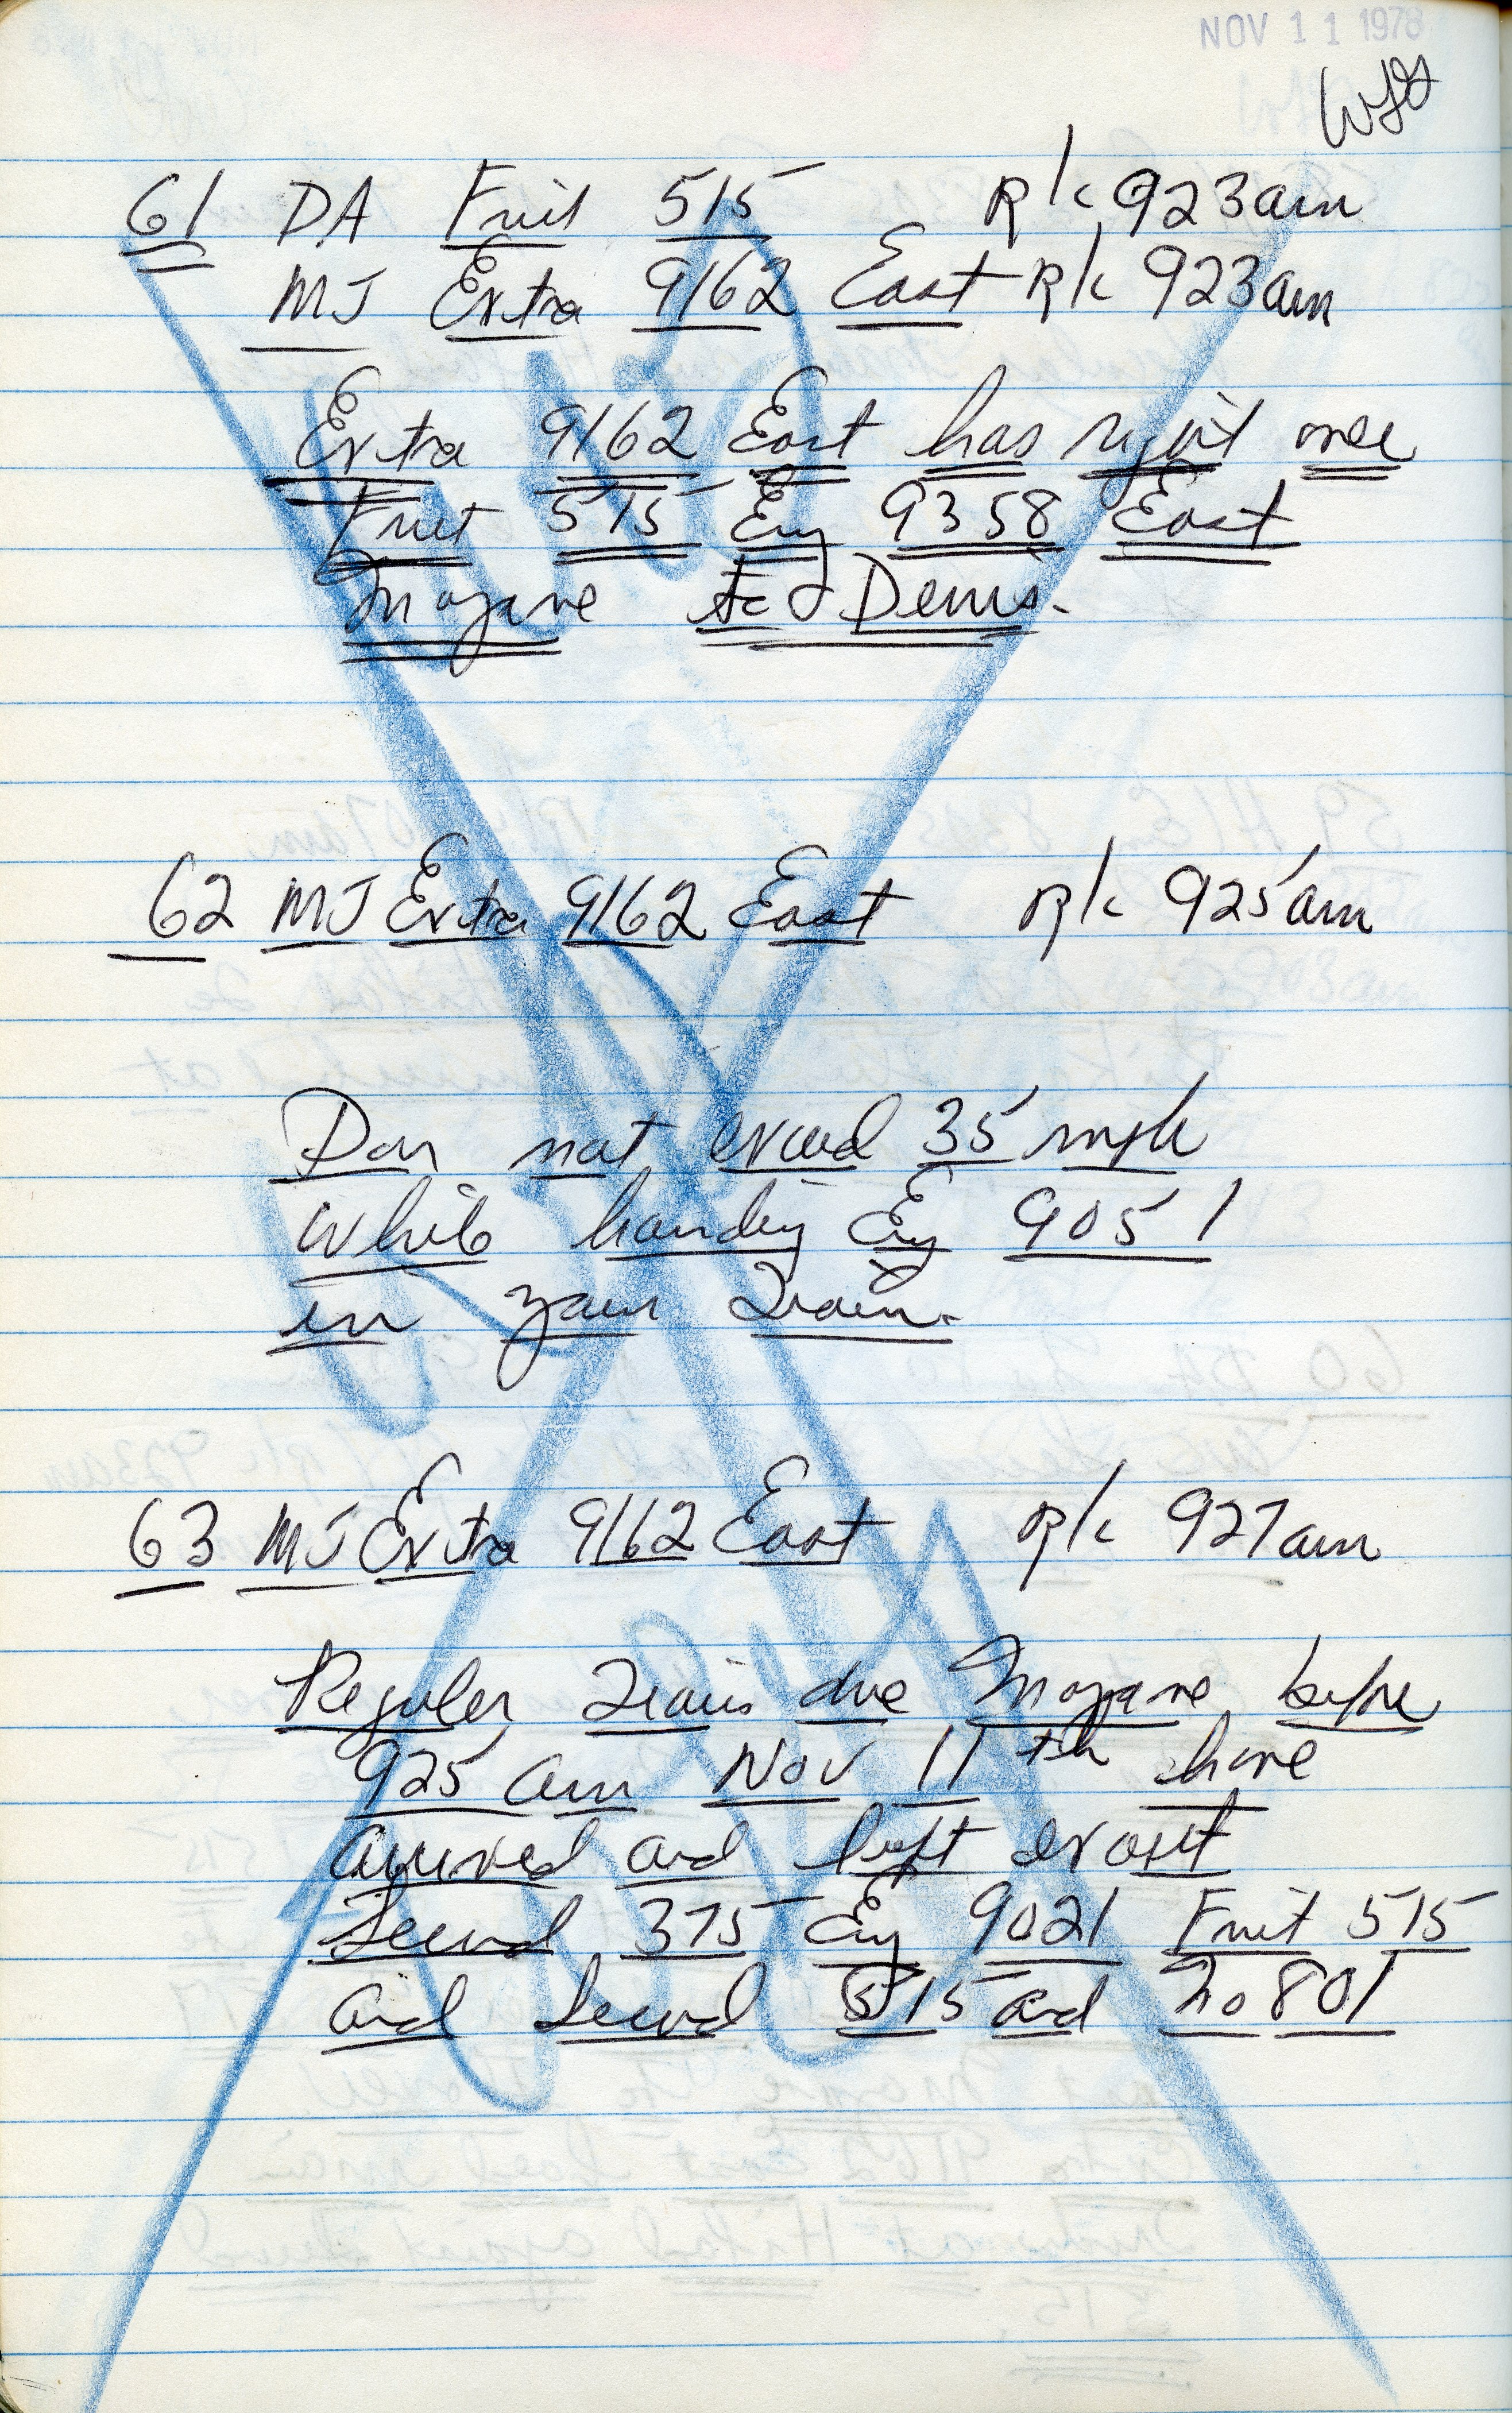 NOV 11 1978
61 DA Fruit 515 R/c 923am
MJ Extra 9162 East R/c 923am
Extra 9162 East has right over
Fruit 515 Eng 9358 East
Mojave to Denis.
62 MJ Extra 9162 East R/c 925am
Do not exceed 35 mph
while handling Eng 9051
in your Train.
63 MJ Extra 9162 East R/c 927am
Regular Trains due Mojave before
925 am Nov 11th have
arrived and left except
Second 375 Eng 9021 Fruit 515
and Second 515 and No 801